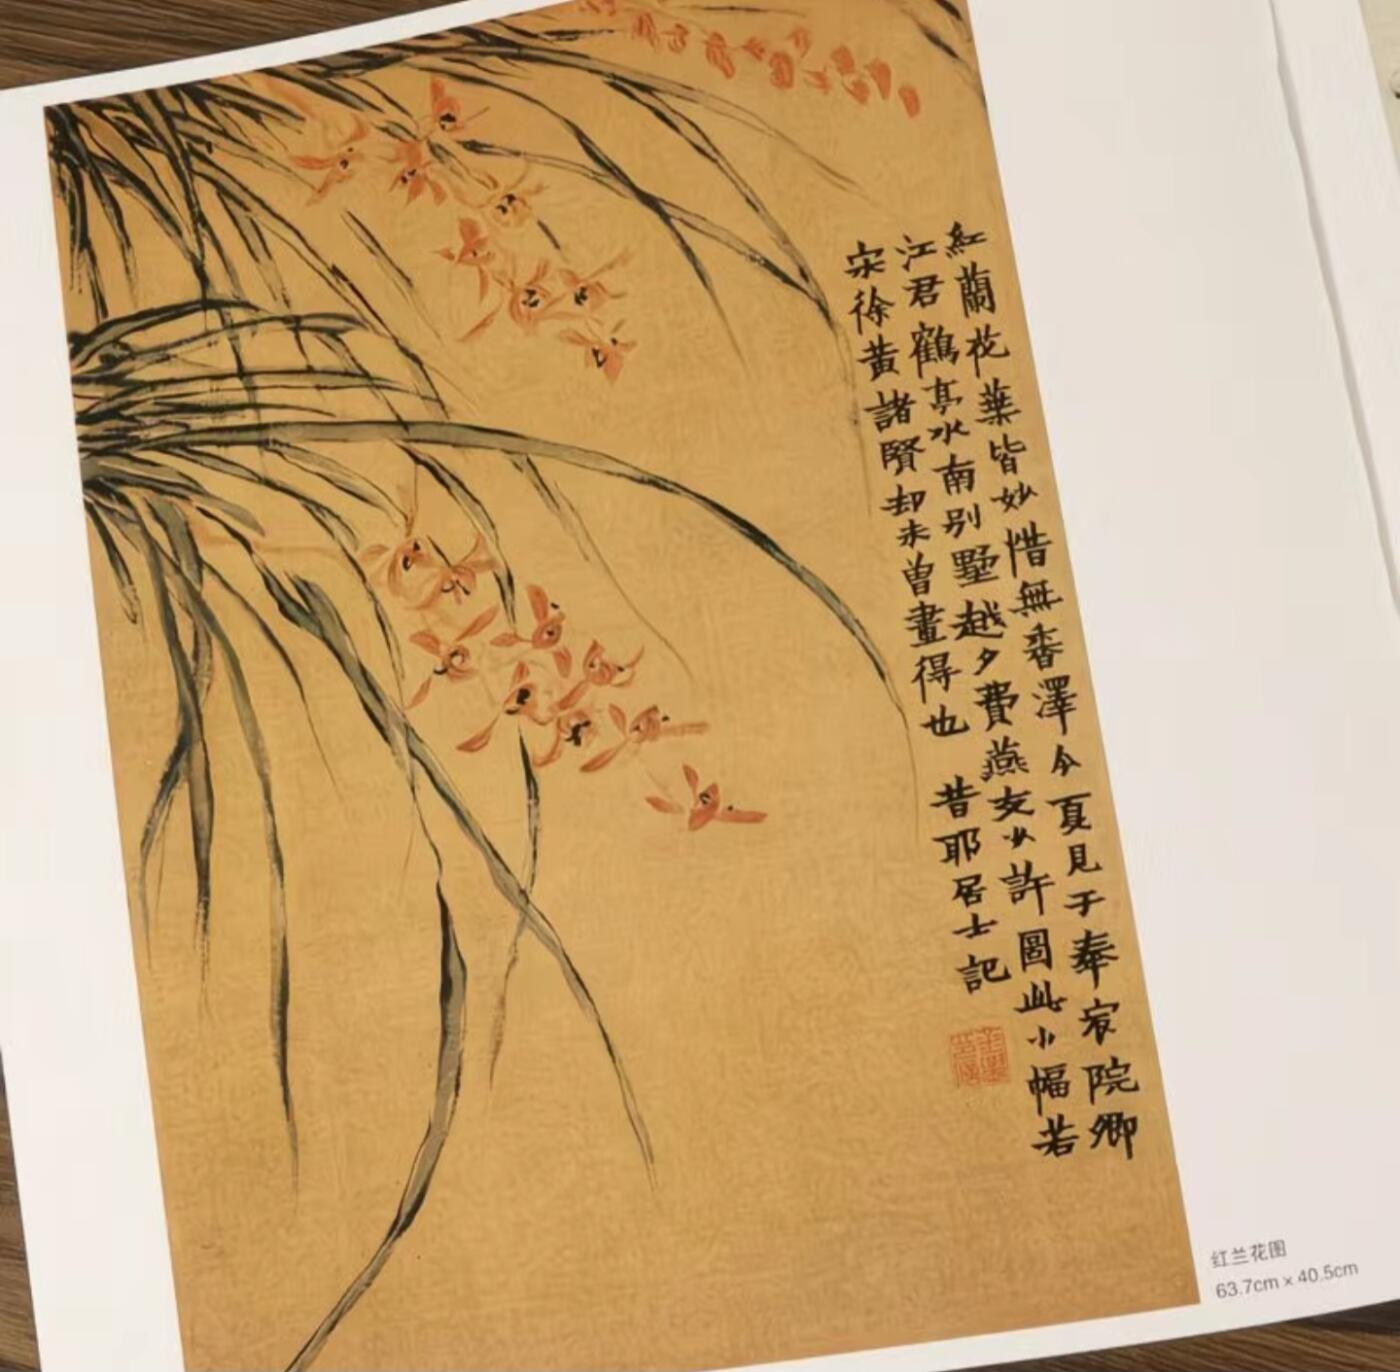 紅蘭花葉皆妙惜無香澤今夏見于奉宸院卿
江君鶴亭水南別墅越夕費燕支少許圖此小幅若
宋徐黃諸賢却未曾畫得也 昔耶居士記
红兰花图
63.7cm x 40.5cm